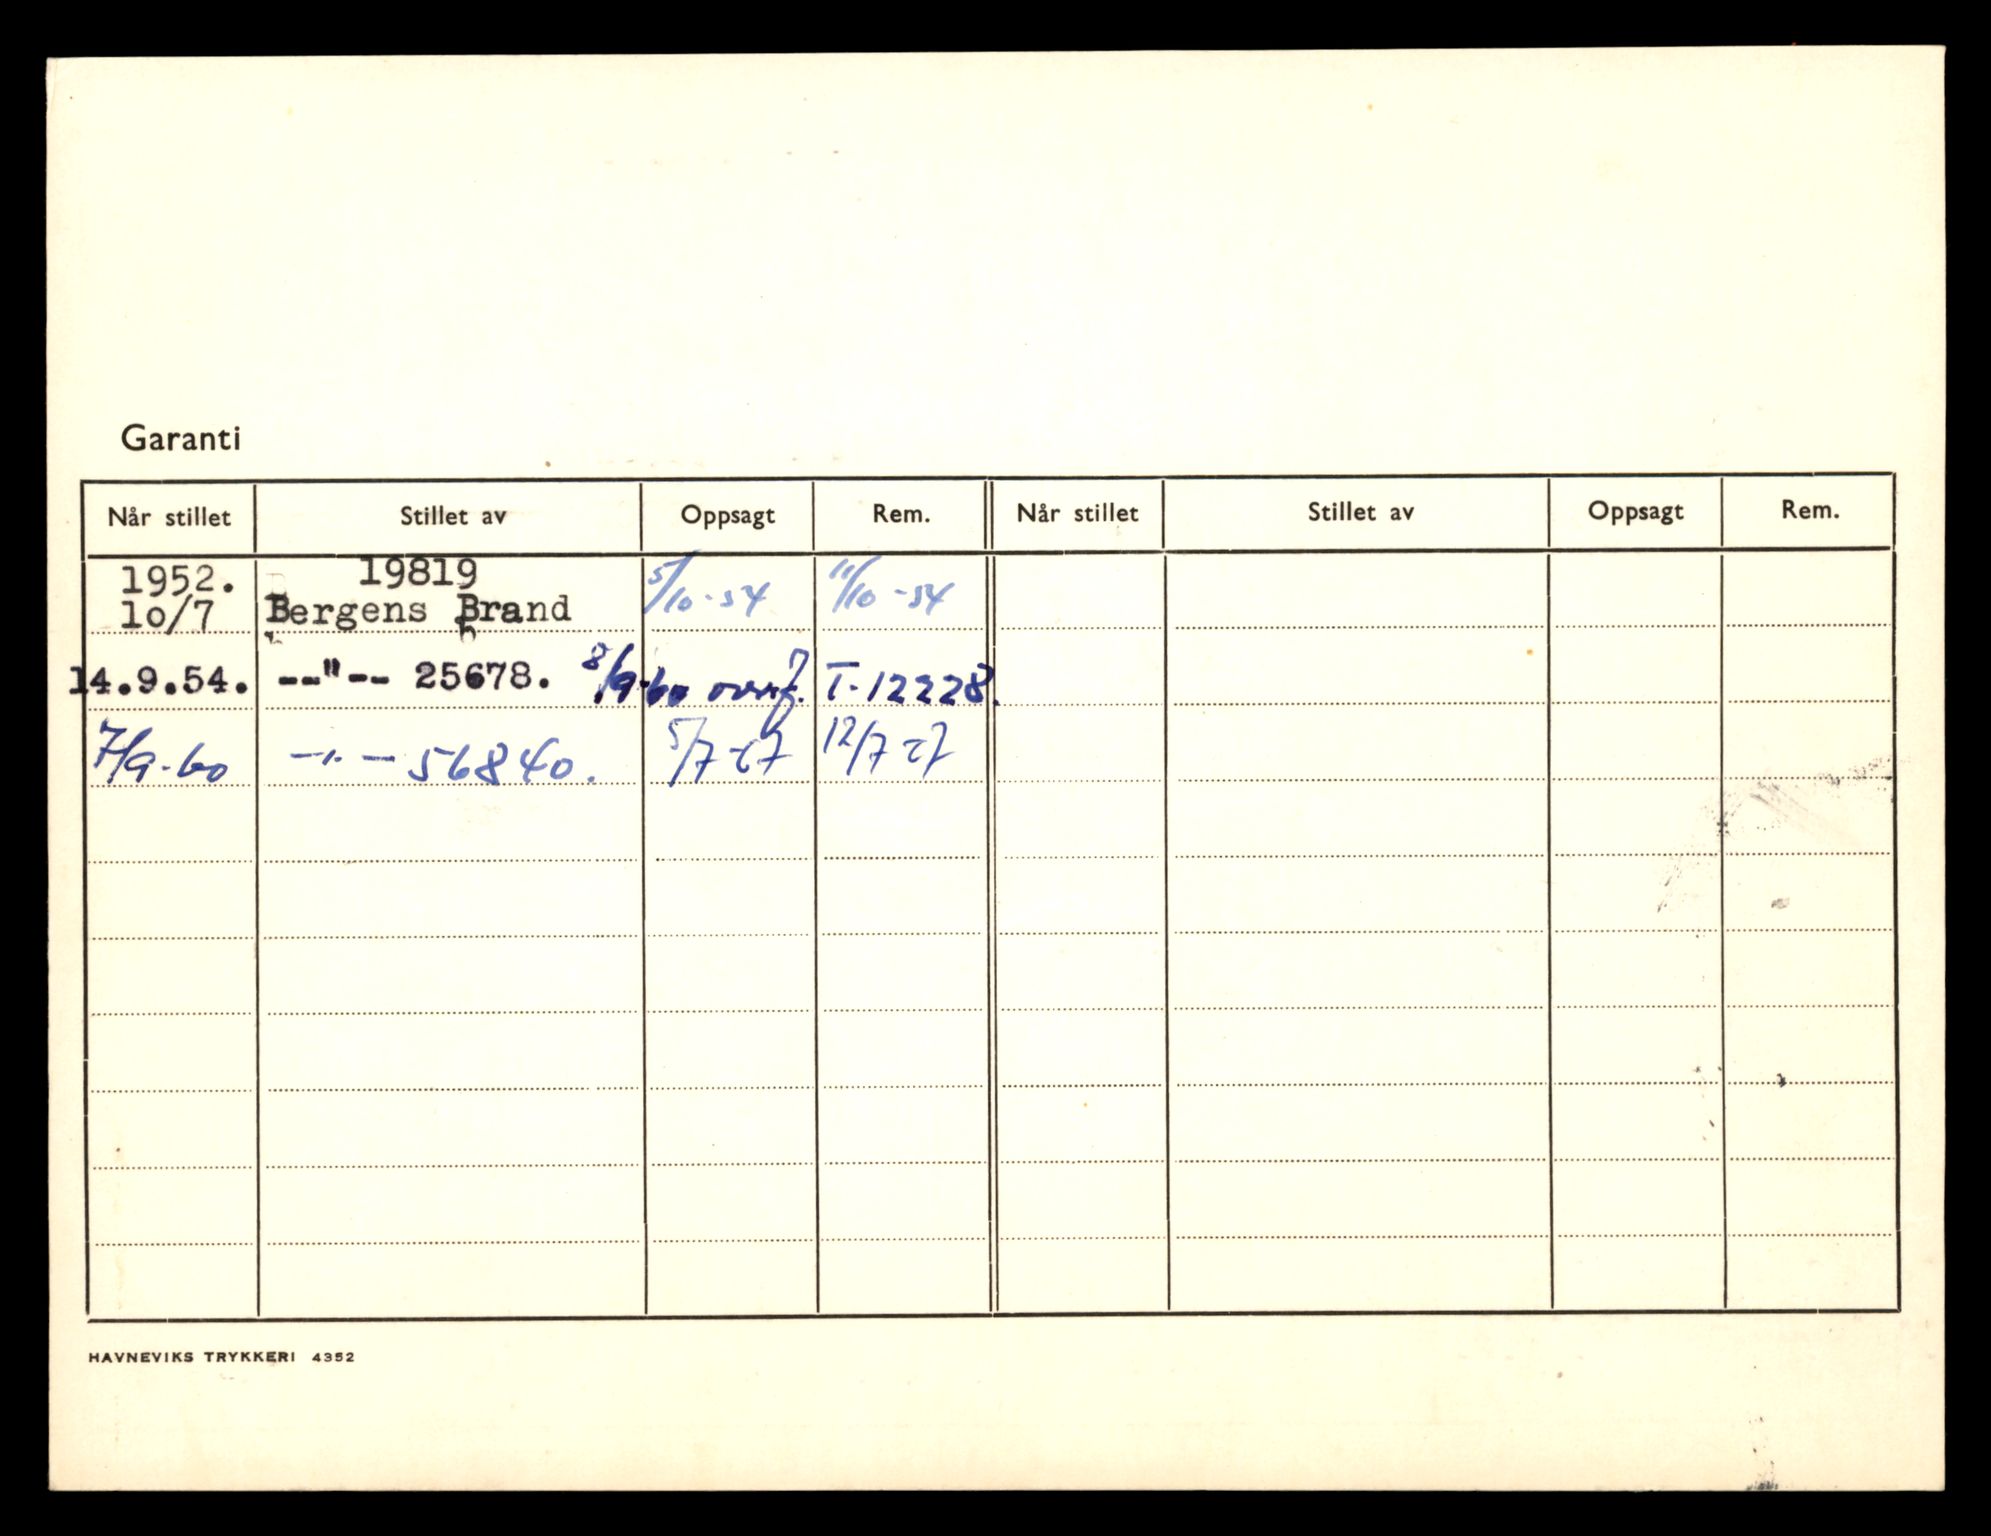 Garanti
Når stillet Stillet av Oppsagt Rem. Når stillet Stillet av Oppsagt Rem.
1952. 19819
10/7 Bergens Brand 5/10-54 11/10-54
14.9.54. --"-- 25678. 8/9-60 overf. T-12228.
7/9-60 -"- 56840. 5/7 67 12/7 67
HAVNEVIKS TRYKKERI 4352